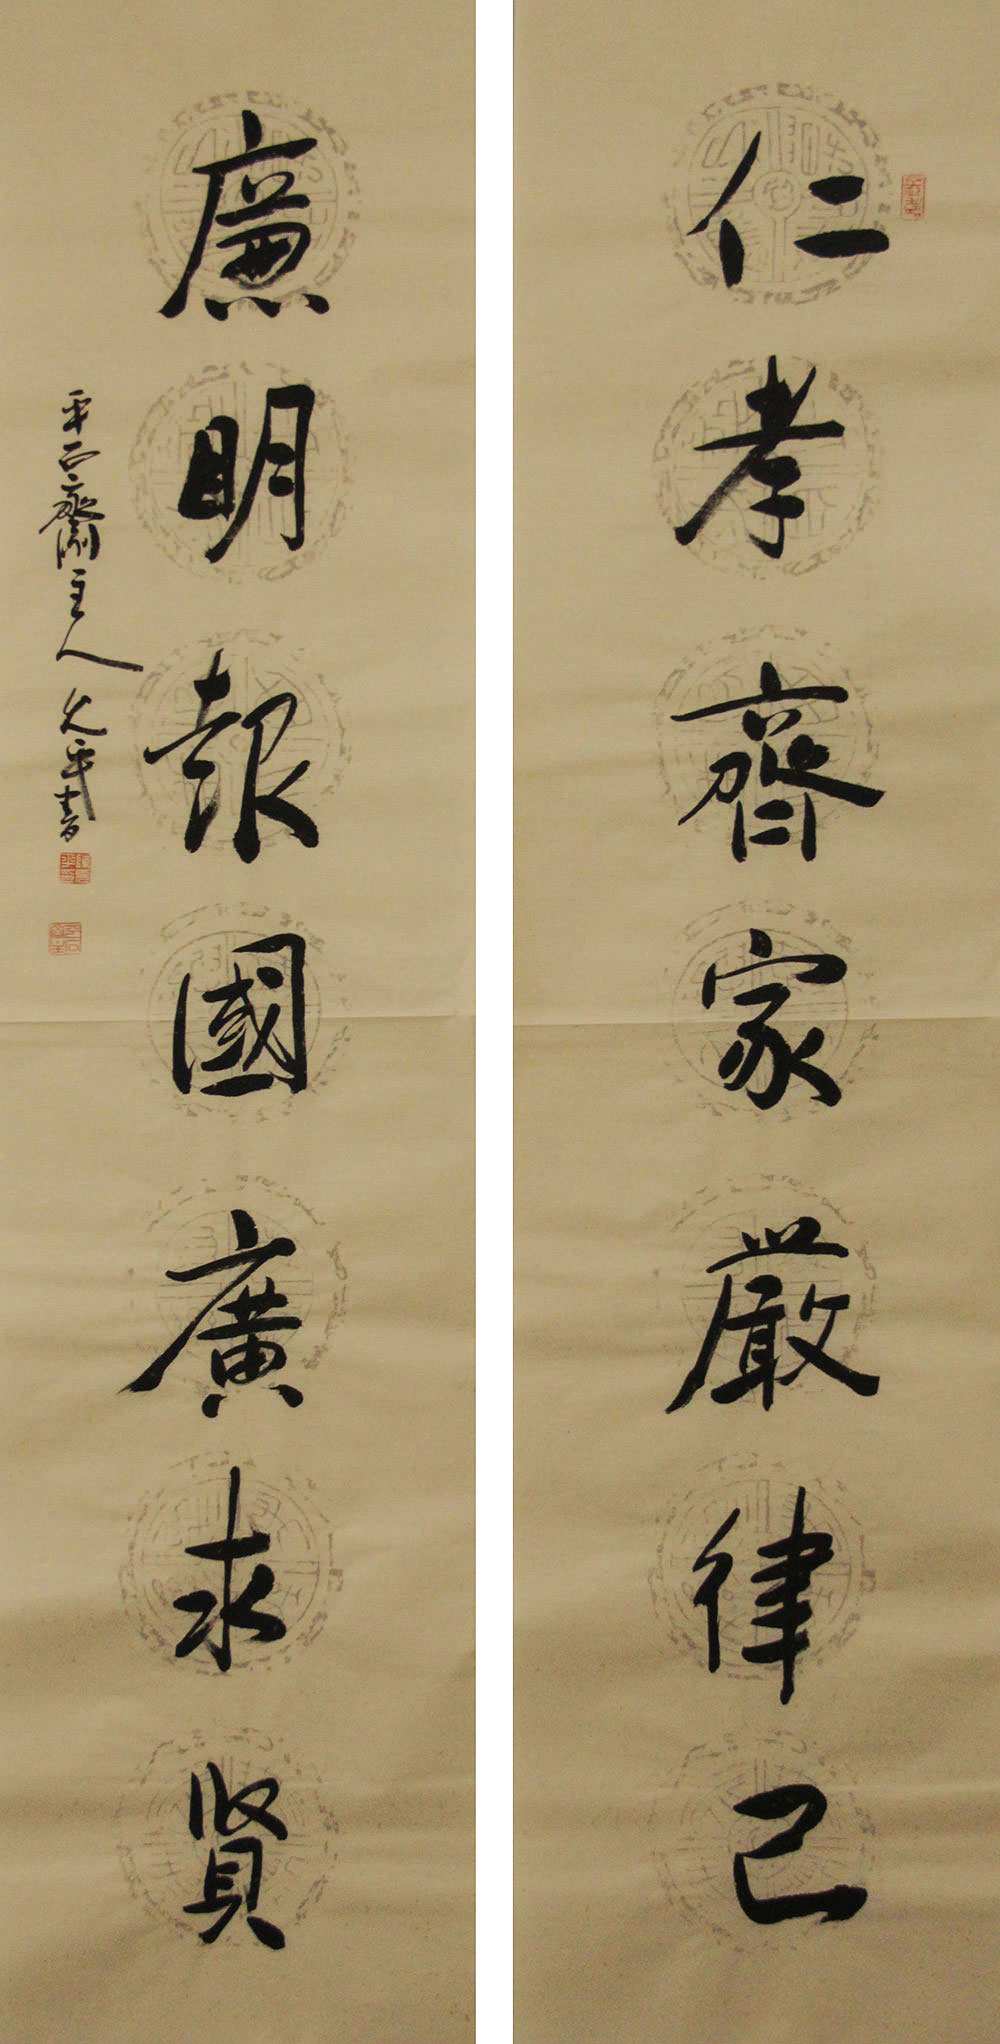 仁孝齊家嚴律己
廉明報國廣求賢
平石齋主人久平書